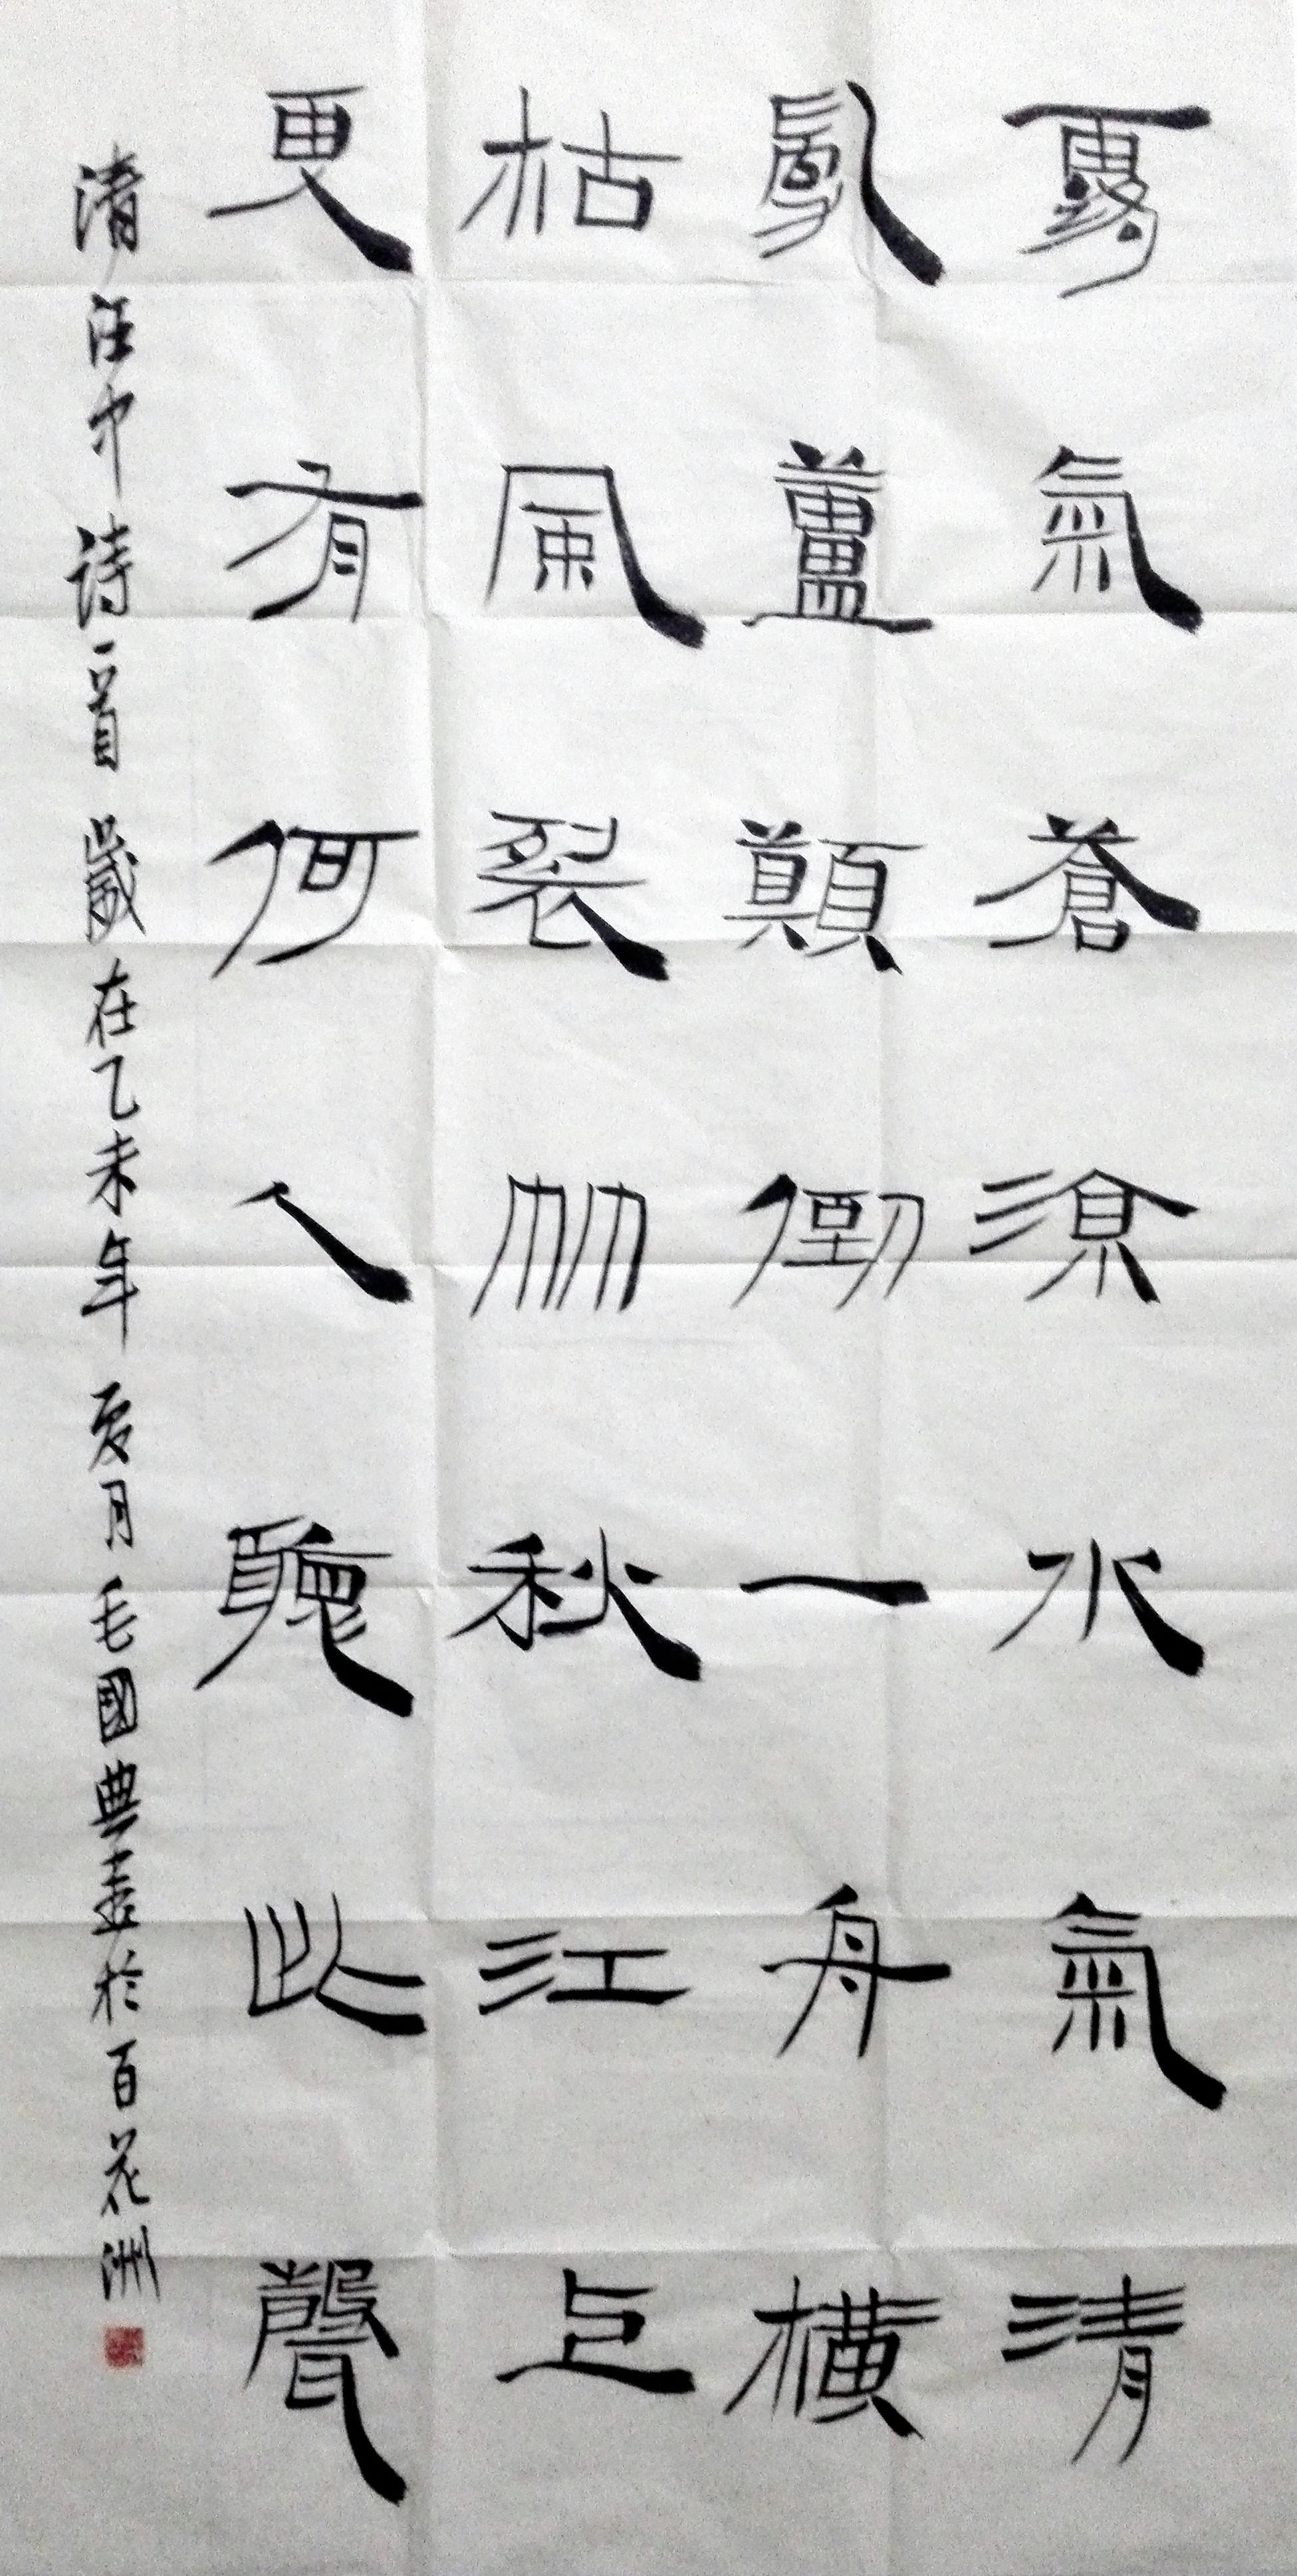 露氣蒼涼水氣清
亂蘆顛倒一舟橫
枯風裂竹秋江上
更有何人聽此聲
清汪中詩一首歲在乙未年夏月毛國典書於百花洲